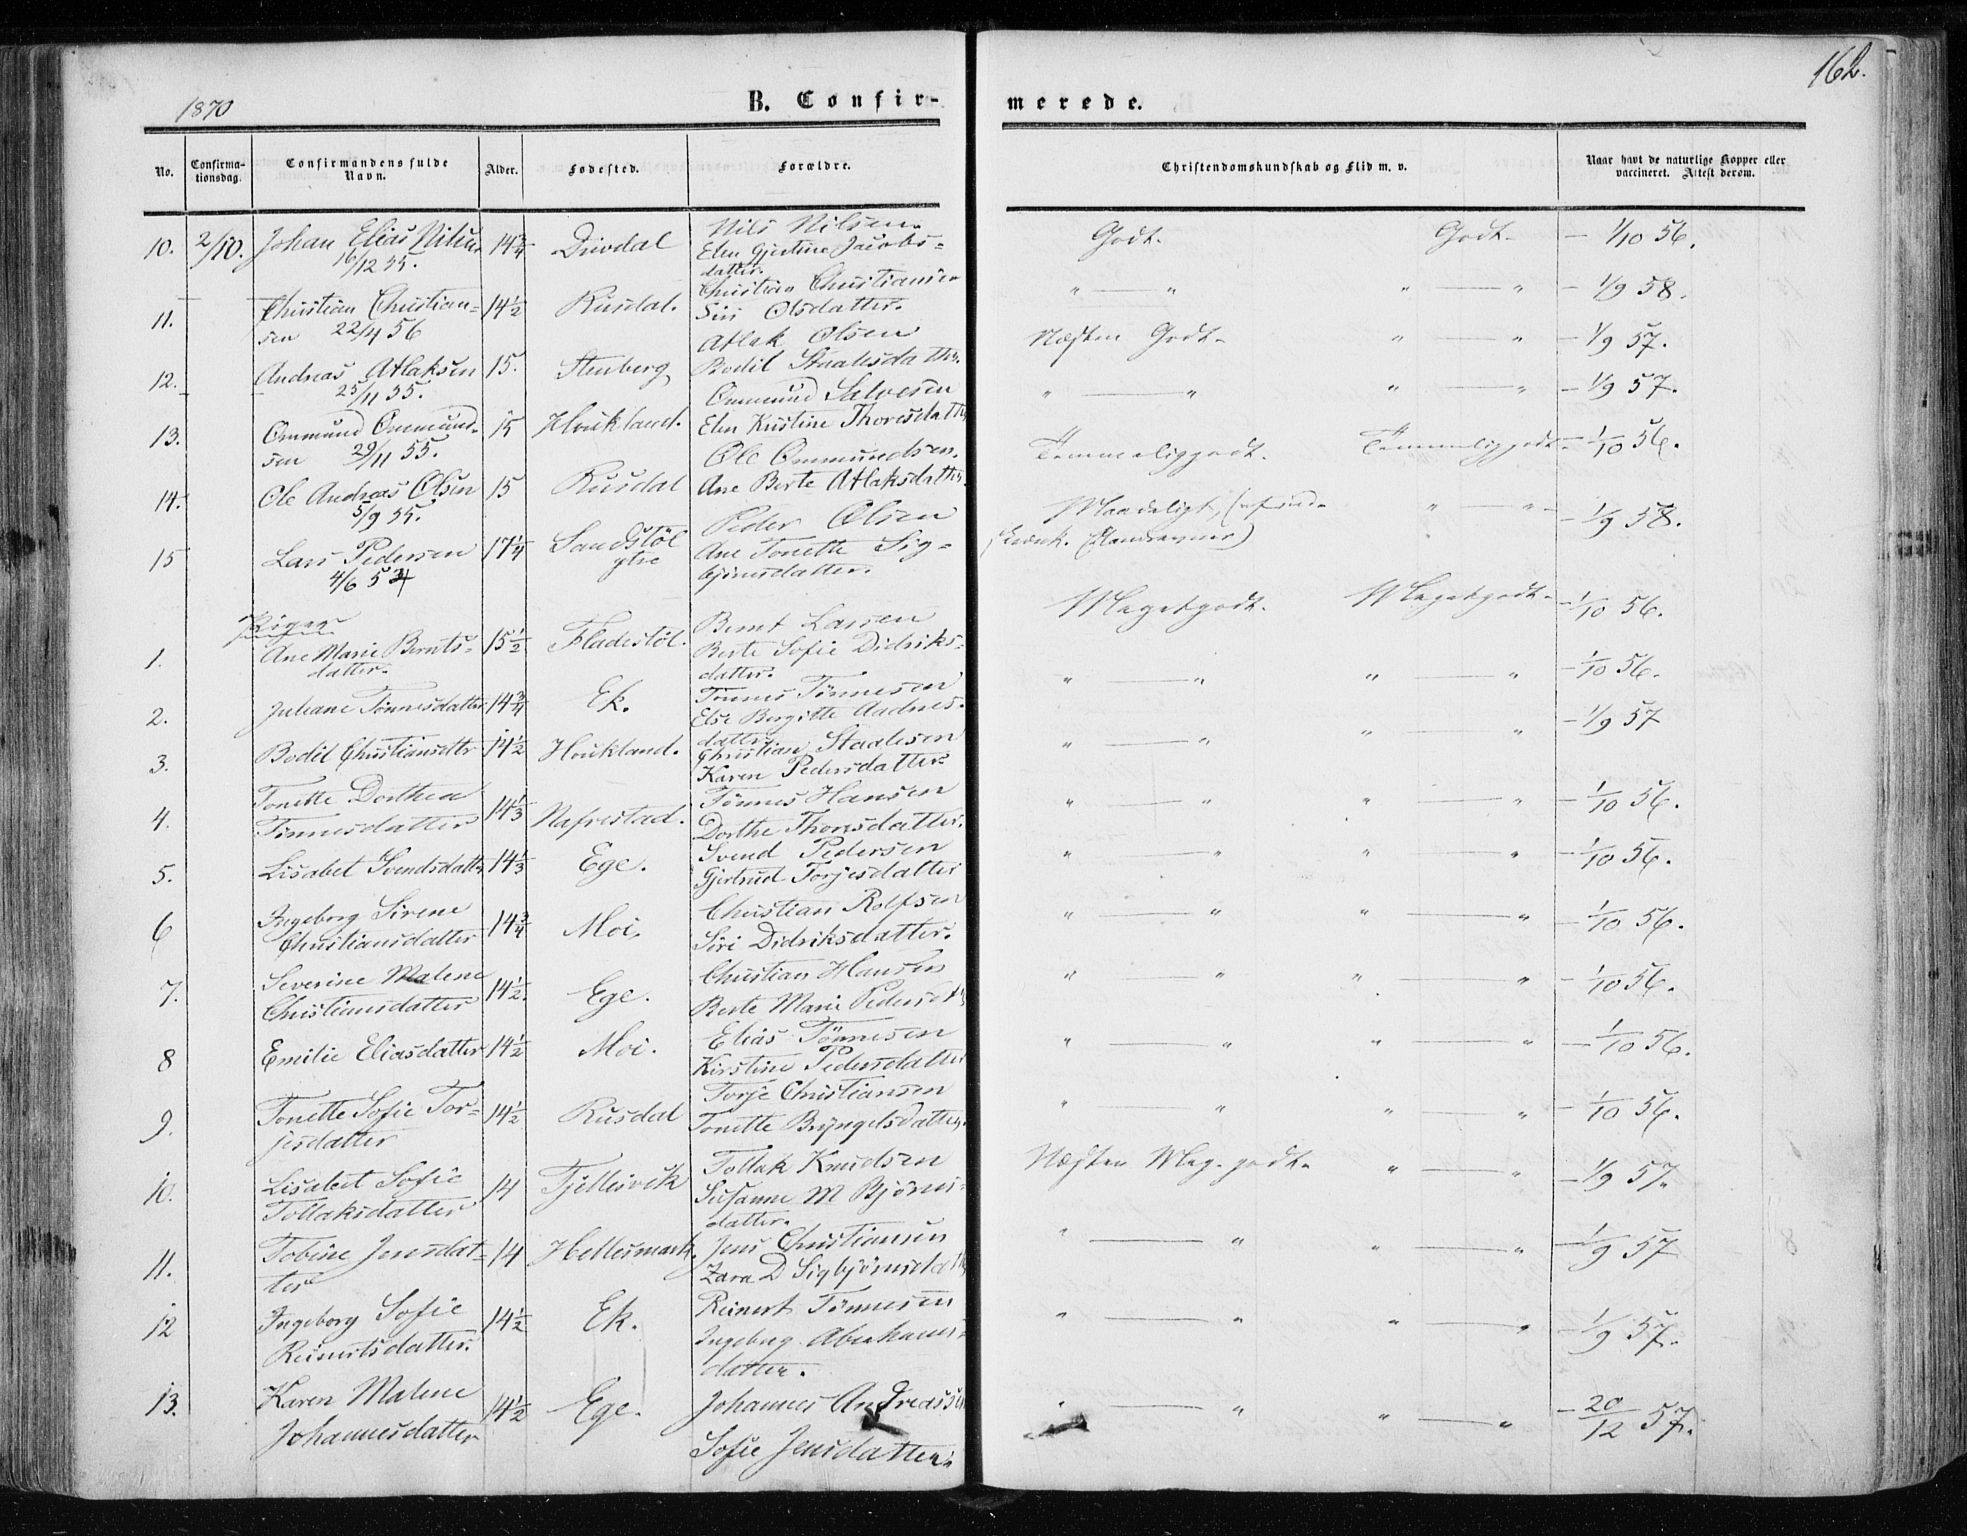 162.
1870
B. Confir-
merede.
No.
Confirma-
tionsdag.
Confirmandens fulde
Navn.
Alder.
Fødested.
Forældre.
Christendomskundskab og Flid m. v.
Naar havt de naturlige Kopper eller
vaccineret. Attest derom.
10. 2/10. Johan Elias Nilsen 14 3/4 Drivdal Nils Nilsen. Godt. Godt. - 1/10 56.
16/12 55. Elen Gjertine Jacobs-
datter.
11. Christian Christian- 14 1/2 Rusdal. Christian Christiansen " — " " — " - 1/9 58.
sen 22/4 56 Siri Olsdatter.
12. Andreas Atlaksen 15. Stenberg Atlak Olsen Næsten Godt. " — " - 1/9 57.
25/11 55. Bodil Staalesdatter.
13. Ommund Ommund- 15 Houkland. Ommund Salvesen " — " " — " - 1/9 57.
sen 29/11 55. Elen Kristine Thoresdatter
14. Ole Andreas Olsen 15 Rusdal Ole Ommundsen. Temmeliggodt. Temmeliggodt - 1/10 56.
5/9 55. Ane Berte Atlaksdatter.
15 Lars Pedersen 17 1/4 Sandstöl Peder Olsen Maadeligt, " — " - 1/9 58.
4/6 53 ytre Ane Tonette Sig-
bjørnsdatter.
Piger
1. Ane Marie Bernts- 15 1/2 Fladestöl. Bernt Larsen Megetgodt. Megetgodt. - 1/10 56.
datter. Berte Sofie Didriks-
datter.
2. Juliane Tönnesdatter 14 3/4 Ek. Tönnes Tönnesen " — " " — " - 1/10 56.
Else Birgitte Aadnes-
datter.
3. Bodil Christiansdtr 14 1/2 Houkland. Christian Staalesen " — " " — " - 1/9 57
Karen Pedersdatter
4. Tonette Dorthea 14 1/3 Nafrestad. Tönnes Hansen " — " " — " - 1/10 56.
Tönnesdatter Dorthe Thoresdatter.
5. Lisabet Svendsdatter 14 1/3 Ege. Svend Pedersen " — " " — " - 1/10 56.
Gjertrud Torjesdatter
6 Ingeborg Sirene 14 3/4 Moi. Christian Rolfsen " — " " — " - 1/10 56.
Christiansdatter Siri Didriksdatter.
7. Severine Malene 14 1/2. Ege. Christian Hansen " — " " — " - 1/10 56.
Christiansdatter Berte Marie Pedersdtr
8 Emilie Eliasdatter 14 1/2 Moi. Elias Tönnesen " — " " — " - 1/10 56.
Kirstine Pedersdatter
9. Tonette Sofie Tor- 14 1/2 Rusdal Torje Christiansen " — " " — " - 1/10 56.
jesdatter Tonette Bryngelsdatter.
10. Lisabet Sofie 14 Tjellesvik Tollak Knudsen Næsten Meg. godt. " — " - 1/9 57.
Tollaksdatter Susanne M Bjørns-
datter.
11. Tobine Jensdat- 14 Hellesmark. Jens Christiansen " — " " — " - 1/9 57
ter Zara D Sigbjørnsdatter
12 Ingeborg Sofie 14 1/2 Ek. Reinert Tönnesen " — " " — " - 1/9 57.
Reinertsdatter. Ingeborg Abrahams-
datter.
13. Karen Malene 14 1/2 Ege. Johannes Andreassen " — " " — " - 20/12 57.
Johannesdatter Sofie Jensdatter.